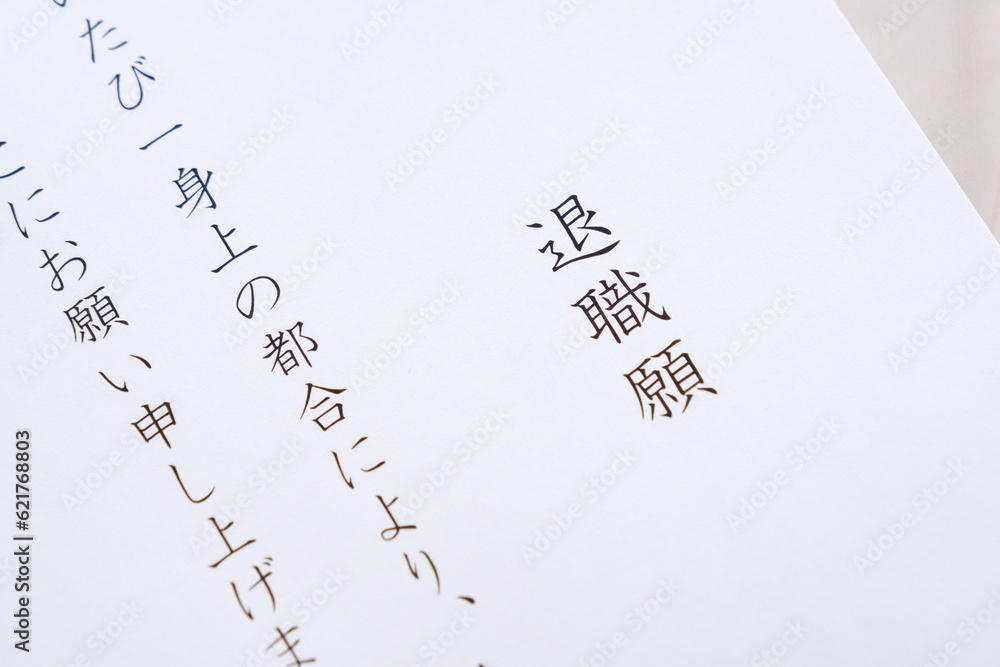 退職願
たび一身上の都合により、
こにお願い申し上げま
Adobe Stock | #621768803